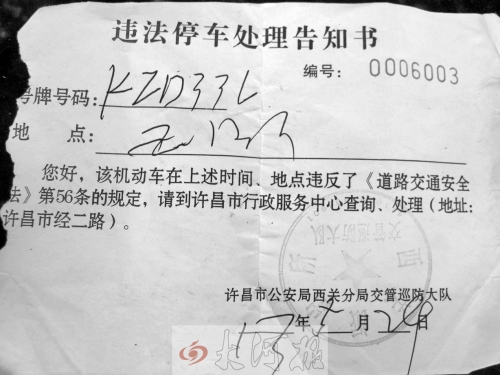 违法停车处理告知书
编号: 0006003
号牌号码: KZD33L
地 点:
您好，该机动车在上述时间、地点违反了《道路交通安全
法》第56条的规定，请到许昌市行政服务中心查询、处理（地址:
许昌市经二路）。
许昌市公安局西关分局交管巡防大队
年 月 29日
大河报
交管巡防大队